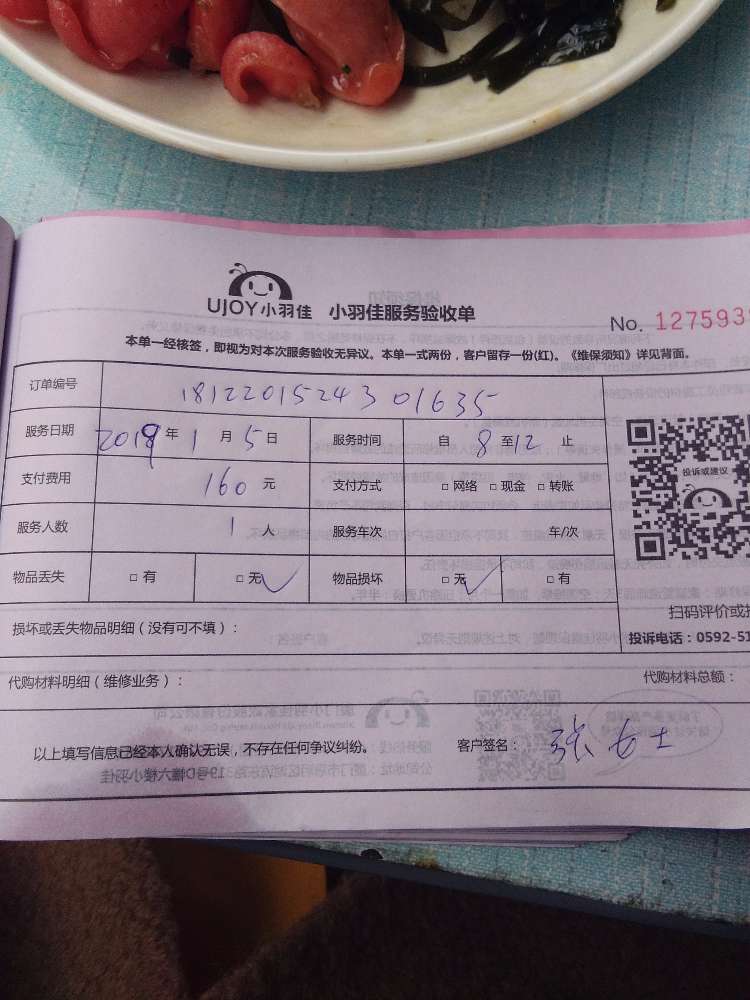 UJOY小羽佳 小羽佳服务验收单
No. 1275938
本单一经核签，即视为对本次服务验收无异议。本单一式两份，客户留存一份(红)。《维保须知》详见背面。
订单编号 1812201524301635
服务日期 2019年1月5日 服务时间 自8至12止
支付费用 160元 支付方式 □网络 □现金 □转账
服务人数 1人 服务车次 车/次
物品丢失 □有 □无✓ 物品损坏 □无✓ □有
投诉或建议
扫码评价或投
损坏或丢失物品明细（没有可不填）：
投诉电话：0592-51
代购材料明细（维修业务）： 代购材料总额：
以上填写信息已经本人确认无误，不存在任何争议纠纷。 客户签名： 张女士